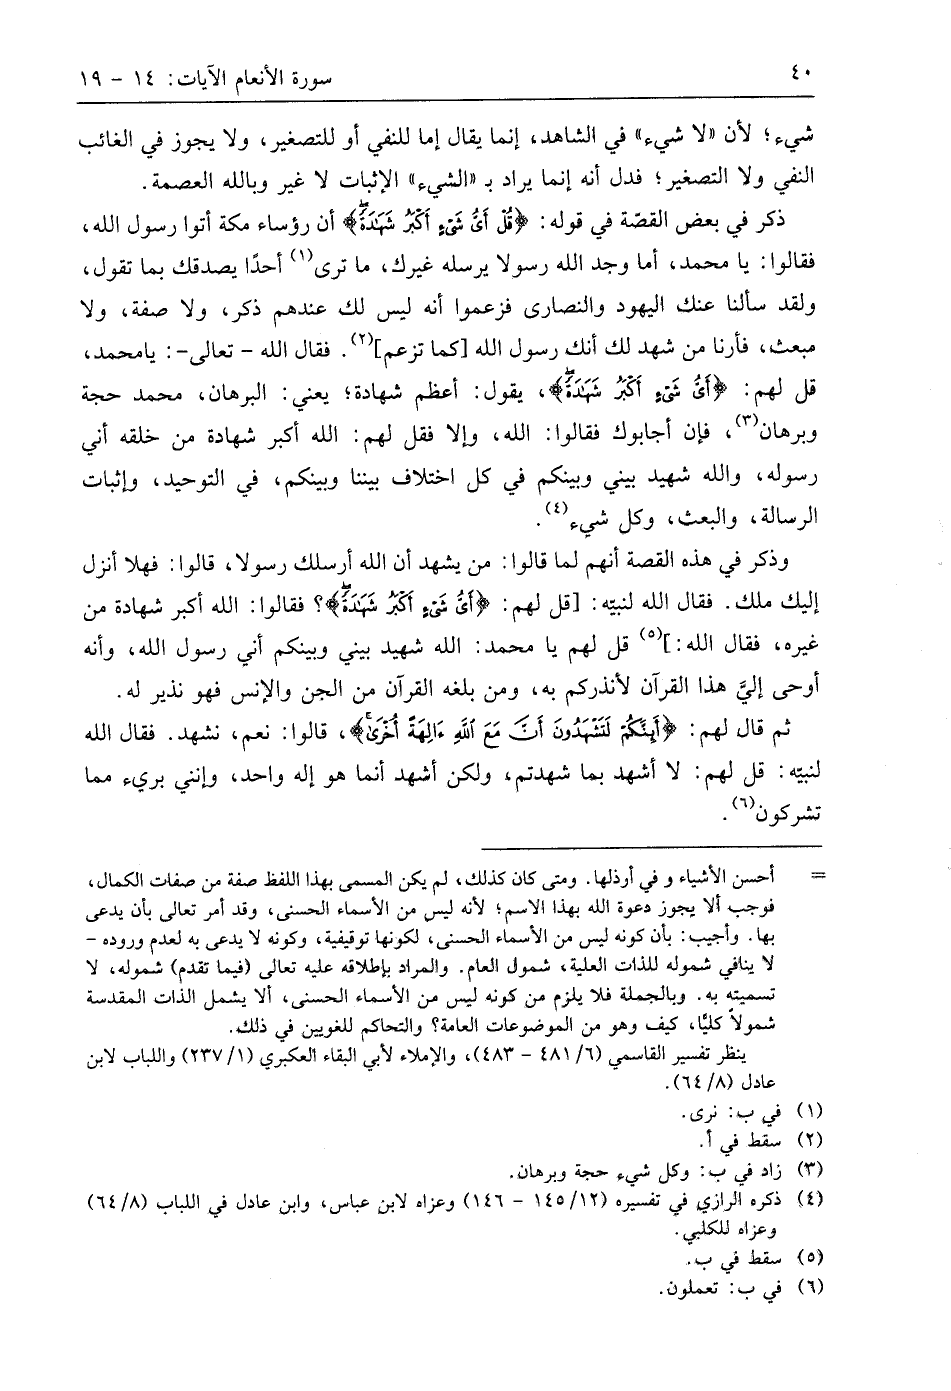 ٤٠ سورة الأنعام الآيات: ١٤ - ١٩
شيء؛ لأن «لا شيء» في الشاهد، إنما يقال إما للنفي أو للتصغير، ولا يجوز في الغائب
النفي ولا التصغير؛ فدل أنه إنما يراد بـ «الشيء» الإثبات لا غير وبالله العصمة.
ذكر في بعض القصّة في قوله: ﴿قُلْ أَىُّ شَىْءٍ أَكْبَرُ شَهَٰدَةً﴾ أن رؤساء مكة أتوا رسول الله،
فقالوا: يا محمد، أما وجد الله رسولا يرسله غيرك، ما ترى(١) أحدًا يصدقك بما تقول،
ولقد سألنا عنك اليهود والنصارى فزعموا أنه ليس لك عندهم ذكر، ولا صفة، ولا
مبعث، فأرنا من شهد لك أنك رسول الله [كما تزعم](٢). فقال الله - تعالى-: يامحمد،
قل لهم: ﴿أَىُّ شَىْءٍ أَكْبَرُ شَهَٰدَةً﴾، يقول: أعظم شهادة؛ يعني: البرهان، محمد حجة
وبرهان(٣)، فإن أجابوك فقالوا: الله، وإلا فقل لهم: الله أكبر شهادة من خلقه أني
رسوله، والله شهيد بيني وبينكم في كل اختلاف بيننا وبينكم، في التوحيد، وإثبات
الرسالة، والبعث، وكل شيء(٤).
وذكر في هذه القصة أنهم لما قالوا: من يشهد أن الله أرسلك رسولا، قالوا: فهلا أنزل
إليك ملك. فقال الله لنبيّه: [قل لهم: ﴿أَىُّ شَىْءٍ أَكْبَرُ شَهَٰدَةً﴾؟ فقالوا: الله أكبر شهادة من
غيره، فقال الله:](٥) قل لهم يا محمد: الله شهيد بيني وبينكم أني رسول الله، وأنه
أوحى إليَّ هذا القرآن لأنذركم به، ومن بلغه القرآن من الجن والإنس فهو نذير له.
ثم قال لهم: ﴿أَئِنَّكُمْ لَتَشْهَدُونَ أَنَّ مَعَ ٱللَّهِ ءَالِهَةً أُخْرَىٰ﴾، قالوا: نعم، نشهد. فقال الله
لنبيّه: قل لهم: لا أشهد بما شهدتم، ولكن أشهد أنما هو إله واحد، وإنني بريء مما
تشركون(٦).
= أحسن الأشياء و في أرذلها. ومتى كان كذلك، لم يكن المسمى بهذا اللفظ صفة من صفات الكمال،
فوجب ألا يجوز دعوة الله بهذا الاسم؛ لأنه ليس من الأسماء الحسنى، وقد أمر تعالى بأن يدعى
بها. وأجيب: بأن كونه ليس من الأسماء الحسنى، لكونها توقيفية، وكونه لا يدعى به لعدم وروده -
لا ينافي شموله للذات العلية، شمول العام. والمراد بإطلاقه عليه تعالى (فيما تقدم) شموله، لا
تسميته به. وبالجملة فلا يلزم من كونه ليس من الأسماء الحسنى، ألا يشمل الذات المقدسة
شمولاً كليًّا، كيف وهو من الموضوعات العامة؟ والتحاكم للغويين في ذلك.
ينظر تفسير القاسمي (٦/ ٤٨١ - ٤٨٣)، والإملاء لأبي البقاء العكبري (١/ ٢٣٧) واللباب لابن
عادل (٨/ ٦٤).
(١) في ب: نرى.
(٢) سقط في أ.
(٣) زاد في ب: وكل شيء حجة وبرهان.
(٤) ذكره الرازي في تفسيره (١٢/ ١٤٥ - ١٤٦) وعزاه لابن عباس، وابن عادل في اللباب (٨/ ٦٤)
وعزاه للكلبي.
(٥) سقط في ب.
(٦) في ب: تعملون.